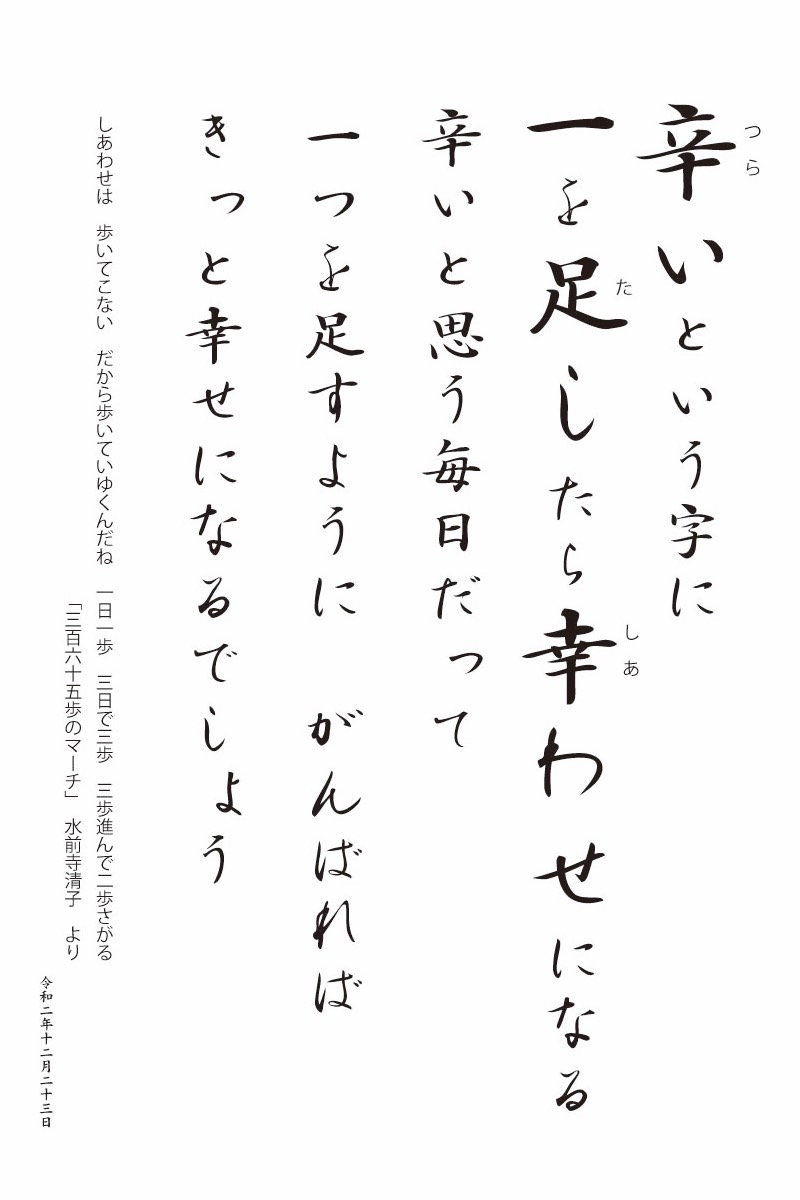 辛いという字に
つら
一を足したら幸わせになる
た
しあ
辛いと思う毎日だって
一つを足すように　がんばれば
きっと幸せになるでしょう
しあわせは　歩いてこない　だから歩いていゆくんだね　一日一歩　三日で三歩　三歩進んで二歩さがる
「三百六十五歩のマーチ」　水前寺清子　より
令和二年十二月二十三日